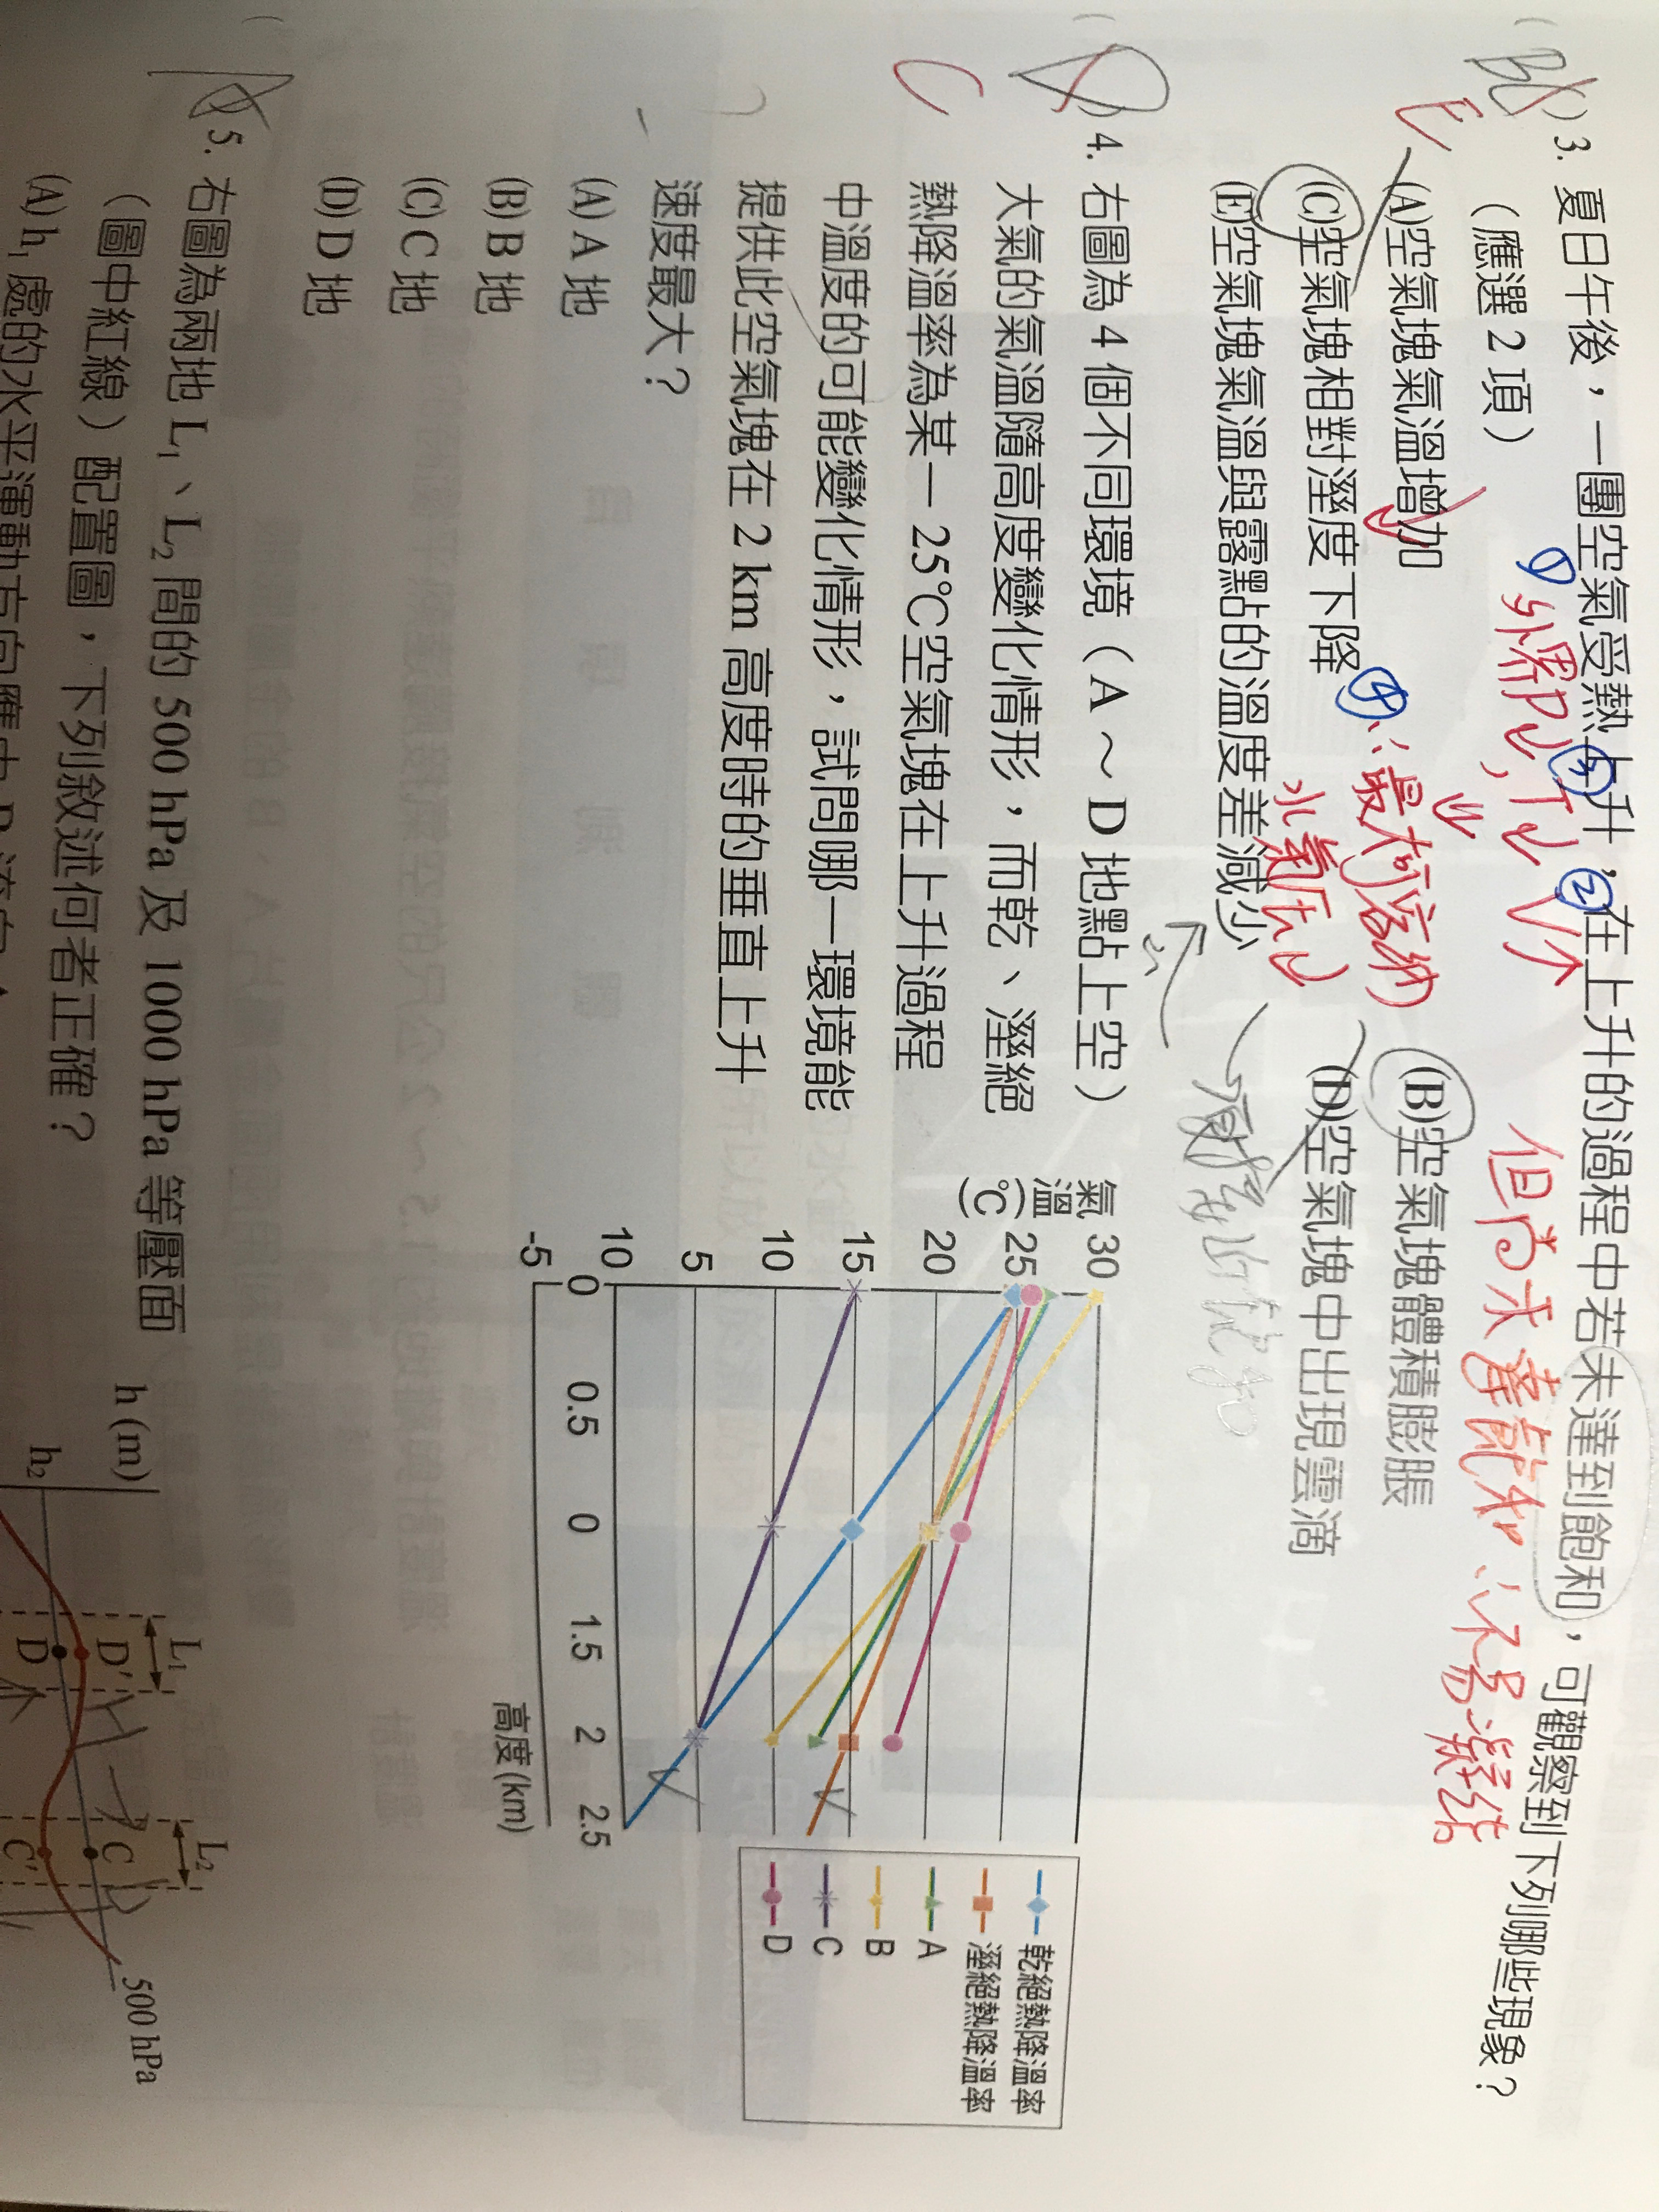 3. 夏日午後，一團空氣受熱上升，在上升的過程中若未達到飽和，可觀察到下列哪些現象？
（應選 2 項）
① 外界P↓, T↓
③
② V↑
但尚未達飽和 ∴不易凝結
(A)空氣塊氣溫增加
(B)空氣塊體積膨脹
(C)空氣塊相對溼度下降
④ ∴最大可容納
水氣压↓
(D)空氣塊中出現雲滴
(E)空氣塊氣溫與露點的溫度差減少
E
C
4. 右圖為 4 個不同環境（A ~ D 地點上空）
大氣的氣溫隨高度變化情形，而乾、溼絕
熱降溫率為某一 25℃空氣塊在上升過程
中溫度的可能變化情形，試問哪一環境能
提供此空氣塊在 2 km 高度時的垂直上升
速度最大？
(A) A 地
(B) B 地
(C) C 地
(D) D 地
氣溫(℃)
30
25
20
15
10
5
10
-5
0
0.5
0
1.5
2
2.5
高度 (km)
乾絕熱降溫率
溼絕熱降溫率
A
B
C
D
5. 右圖為兩地 L₁、L₂ 間的 500 hPa 及 1000 hPa 等壓面
（圖中紅線）配置圖，下列敘述何者正確？
(A) h₁ 處的水平運動方向應由 D 流向
h (m)
h₂
L₁
L₂
D
D′
C
C′
500 hPa